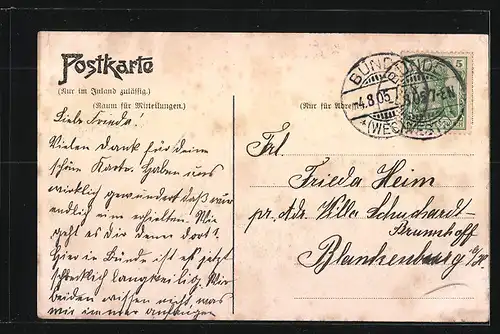 Postkarte
(Nur im Inland zulässig.)
(Raum für Mitteilungen.)
(Nur für Adresse
5
BÜNDE
4.8.05
(WESTF.)
Liebe Frieda!
Vielen Dank für deine
schöne Karte. Haben uns
wirklich gewundert daß wir
endlich eine erhielten. Wie
geht es dir denn dort?
Hier in Bünde ist es jetzt
schrecklich langweilig. Wir
beiden wissen nicht was
wir immer anfangen
Frl.
Frieda Heim
pr. Adr. Villa Schuchardt-
Krumhoff
Blankenburg a/H.